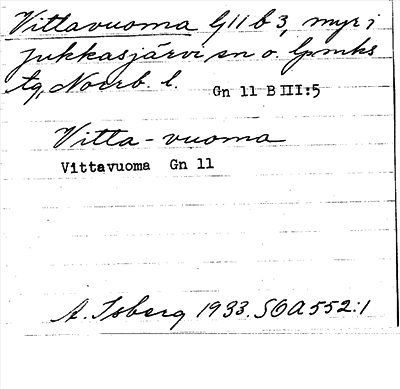 Vittavuoma G11 b 3, myr i
Jukkasjärvi sn o. lpmks
tg, Norrb. l.
Gn 11 B III:5
Vitta-vuoma
Vittavuoma Gn 11
A. Isberg 1933. SOA 552:1